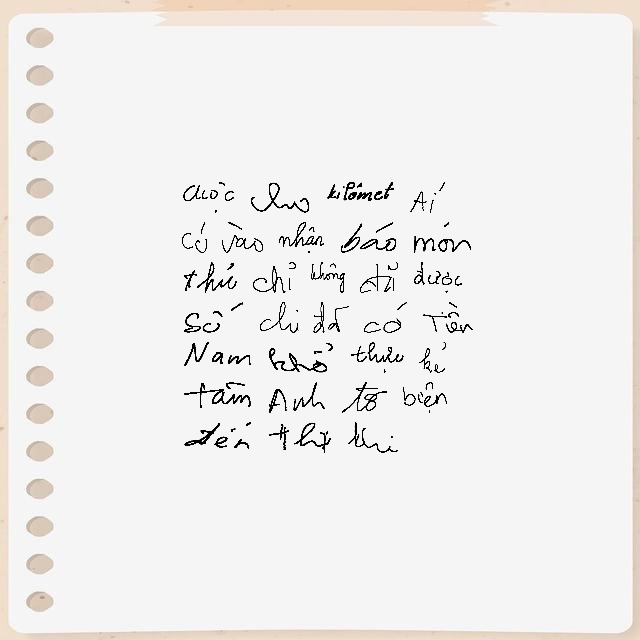 được cho kilômet Ái
có vào nhận báo món
thứ chỉ không đã được
số chi đã có Tiền
Nam khổ thực kẻ
tâm Anh tờ biện
đến thị khi